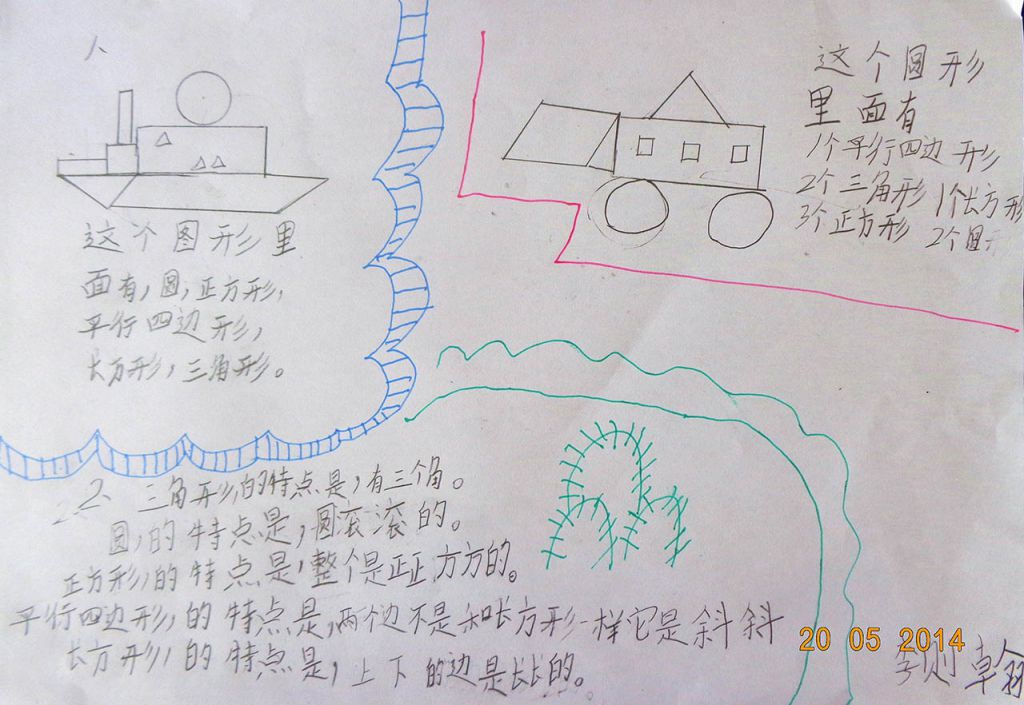 1、
这个图形里
面有，圆，正方形，
平行四边形，
长方形，三角形。
这个圆形
里面有
1个平行四边形
2个三角形 1个长方形
3个正方形 2个圆形
2、三角形，的特点是，有三个角。
圆，的特点是，圆滚滚的。
正方形，的特点是，整个是正正方方的。
平行四边形，的特点是，两个边不是和长方形一样它是斜斜
长方形，的特点是，上下的边是长长的。
20 05 2014